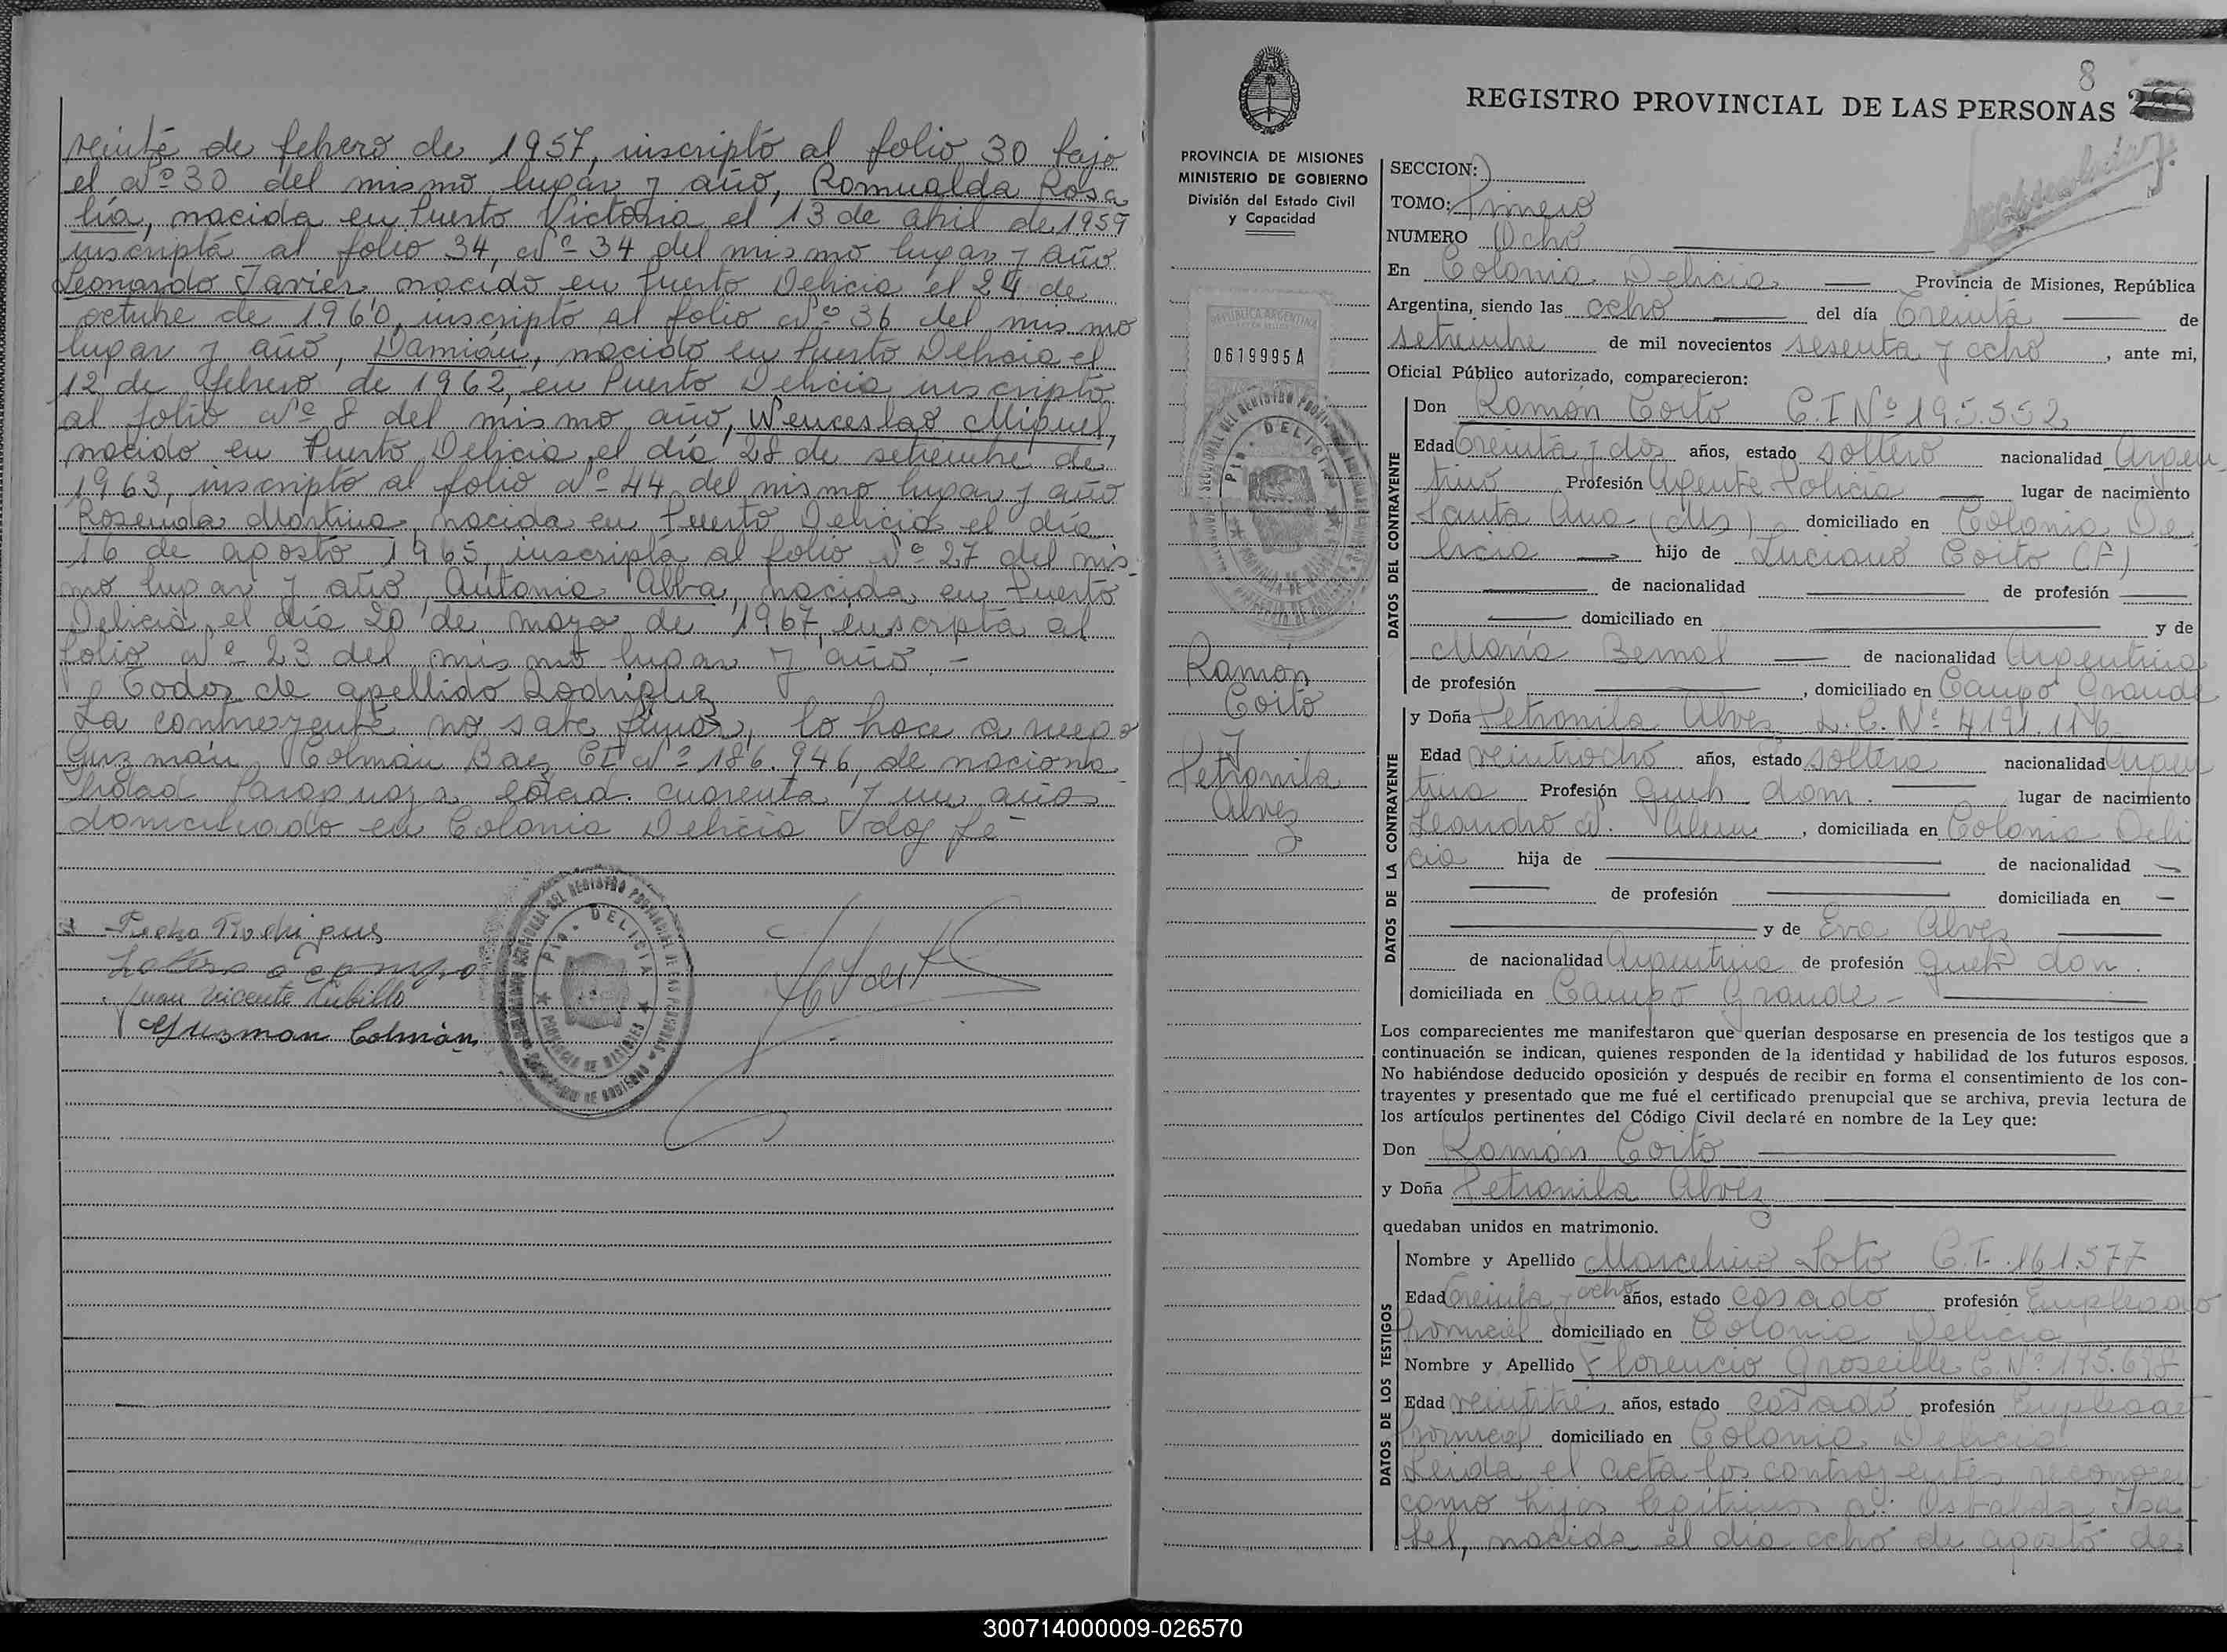 veinte de febrero de 1957, inscripto al folio 30 bajo
el Nº 30 del mismo lugar y año, Romualda Rosa
lía, nacida en Puerto Victoria el 13 de abril de 1959
inscripta al folio 34, Nº 34 del mismo lugar y año
Leonardo Javier, nacido en Puerto Delicia el 24 de
octubre de 1960, inscripto al folio Nº 36 del mismo
lugar y año, Damián, nacido en Puerto Delicia el
12 de febrero de 1962, en Puerto Delicia inscripto
al folio Nº 8 del mismo año, Wenceslao Miguel,
nacido en Puerto Delicia el día 28 de setiembre de
1963, inscripto al folio Nº 44 del mismo lugar y año
Rosenda Martina, nacida en Puerto Delicia el día
16 de agosto 1965, inscripta al folio Nº 27 del mis-
mo lugar y año, Antonia Alba, nacida en Puerto
Delicia el día 20 de mayo de 1967, inscripta al
folio Nº 23 del mismo lugar y año.-
Todos de apellido Rodriguez
La contrayente no sabe firmar, lo hace a ruego
Guzmán Colmán Baez CI Nº 186.946, de naciona
lidad Paraguaya edad cuarenta y un años
domiciliado en Colonia Delicia doy fé
Pedro Rodrigues
Juan Vicente Cubillo
Guzman Colmán
SECCIONAL DEL REGISTRO PROVINCIAL DE LAS PERSONAS
Pto. DELICIA
PROVINCIA DE MISIONES
8
REGISTRO PROVINCIAL DE LAS PERSONAS
PROVINCIA DE MISIONES
MINISTERIO DE GOBIERNO
División del Estado Civil
y Capacidad
REPUBLICA ARGENTINA
0619995A
Pto. DELICIA
Ramón
Coito
y
Petronila
Alvez
SECCION:
TOMO: Primero
NUMERO Ocho
En Colonia Delicia Provincia de Misiones, República
Argentina, siendo las ocho del día Treinta de
setiembre de mil novecientos sesenta y ocho, ante mi,
Oficial Público autorizado, comparecieron:
DATOS DEL CONTRAYENTE
Don Ramón Coito C.I Nº 195.552
Edad Treinta y dos años, estado soltero nacionalidad Argen
tino Profesión Agente Policia lugar de nacimiento
Santa Ana (Ms) domiciliado en Colonia De
licia hijo de Luciano Coito (F)
de nacionalidad de profesión
domiciliado en y de
María Bernal de nacionalidad Argentina
de profesión , domiciliado en Campo Grande
DATOS DE LA CONTRAYENTE
y Doña Petronila Alvez L.C. Nº 4191.116
Edad veintiocho años, estado soltera nacionalidad Argen
tina Profesión Queh. dom. lugar de nacimiento
Leandro N. Alem, domiciliada en Colonia Deli
cia hija de de nacionalidad
de profesión domiciliada en
y de Eva Alvez
de nacionalidad Argentina de profesión Queh dom.
domiciliada en Campo Grande-
Los comparecientes me manifestaron que querían desposarse en presencia de los testigos que a
continuación se indican, quienes responden de la identidad y habilidad de los futuros esposos.
No habiéndose deducido oposición y después de recibir en forma el consentimiento de los con-
trayentes y presentado que me fué el certificado prenupcial que se archiva, previa lectura de
los artículos pertinentes del Código Civil declaré en nombre de la Ley que:
Don Ramón Coito
y Doña Petronila Alvez
quedaban unidos en matrimonio.
DATOS DE LOS TESTIGOS
Nombre y Apellido Marcelino Soto C.I. 161.577
Edad Treinta y ocho años, estado casado profesión Empleado
Provincial domiciliado en Colonia Delicia
Nombre y Apellido Florencio Groseille C. Nº 175.678
Edad veintitrés años, estado casado profesión Empleado
Provincial domiciliado en Colonia Delicia
Leída el acta los contrayentes reconocen
como hijos legítimos a: Osvalda Isa
bel, nacida el día ocho de agosto de
300714000009-026570